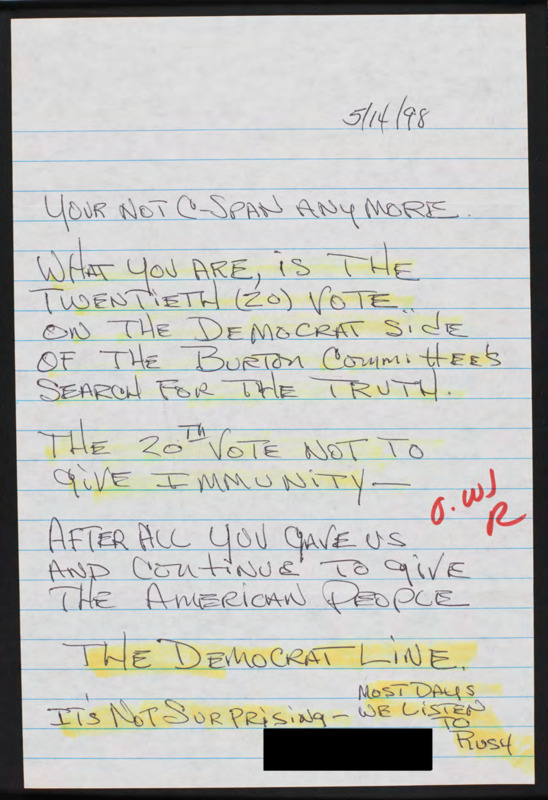 5/14/98
YOUR NOT C-SPAN ANYMORE.
WHAT YOU ARE, IS THE
TWENTIETH (20) VOTE
ON THE DEMOCRAT SIDE
OF THE BURTON COMMITTEE'S
SEARCH FOR THE TRUTH.
THE 20TH VOTE NOT TO
GIVE IMMUNITY—
AFTER ALL YOU GAVE US
AND CONTINUE TO GIVE
THE AMERICAN PEOPLE
THE DEMOCRAT LINE.
IT'S NOT SURPRISING—
MOST DAYS
WE LISTEN
TO
RUSH